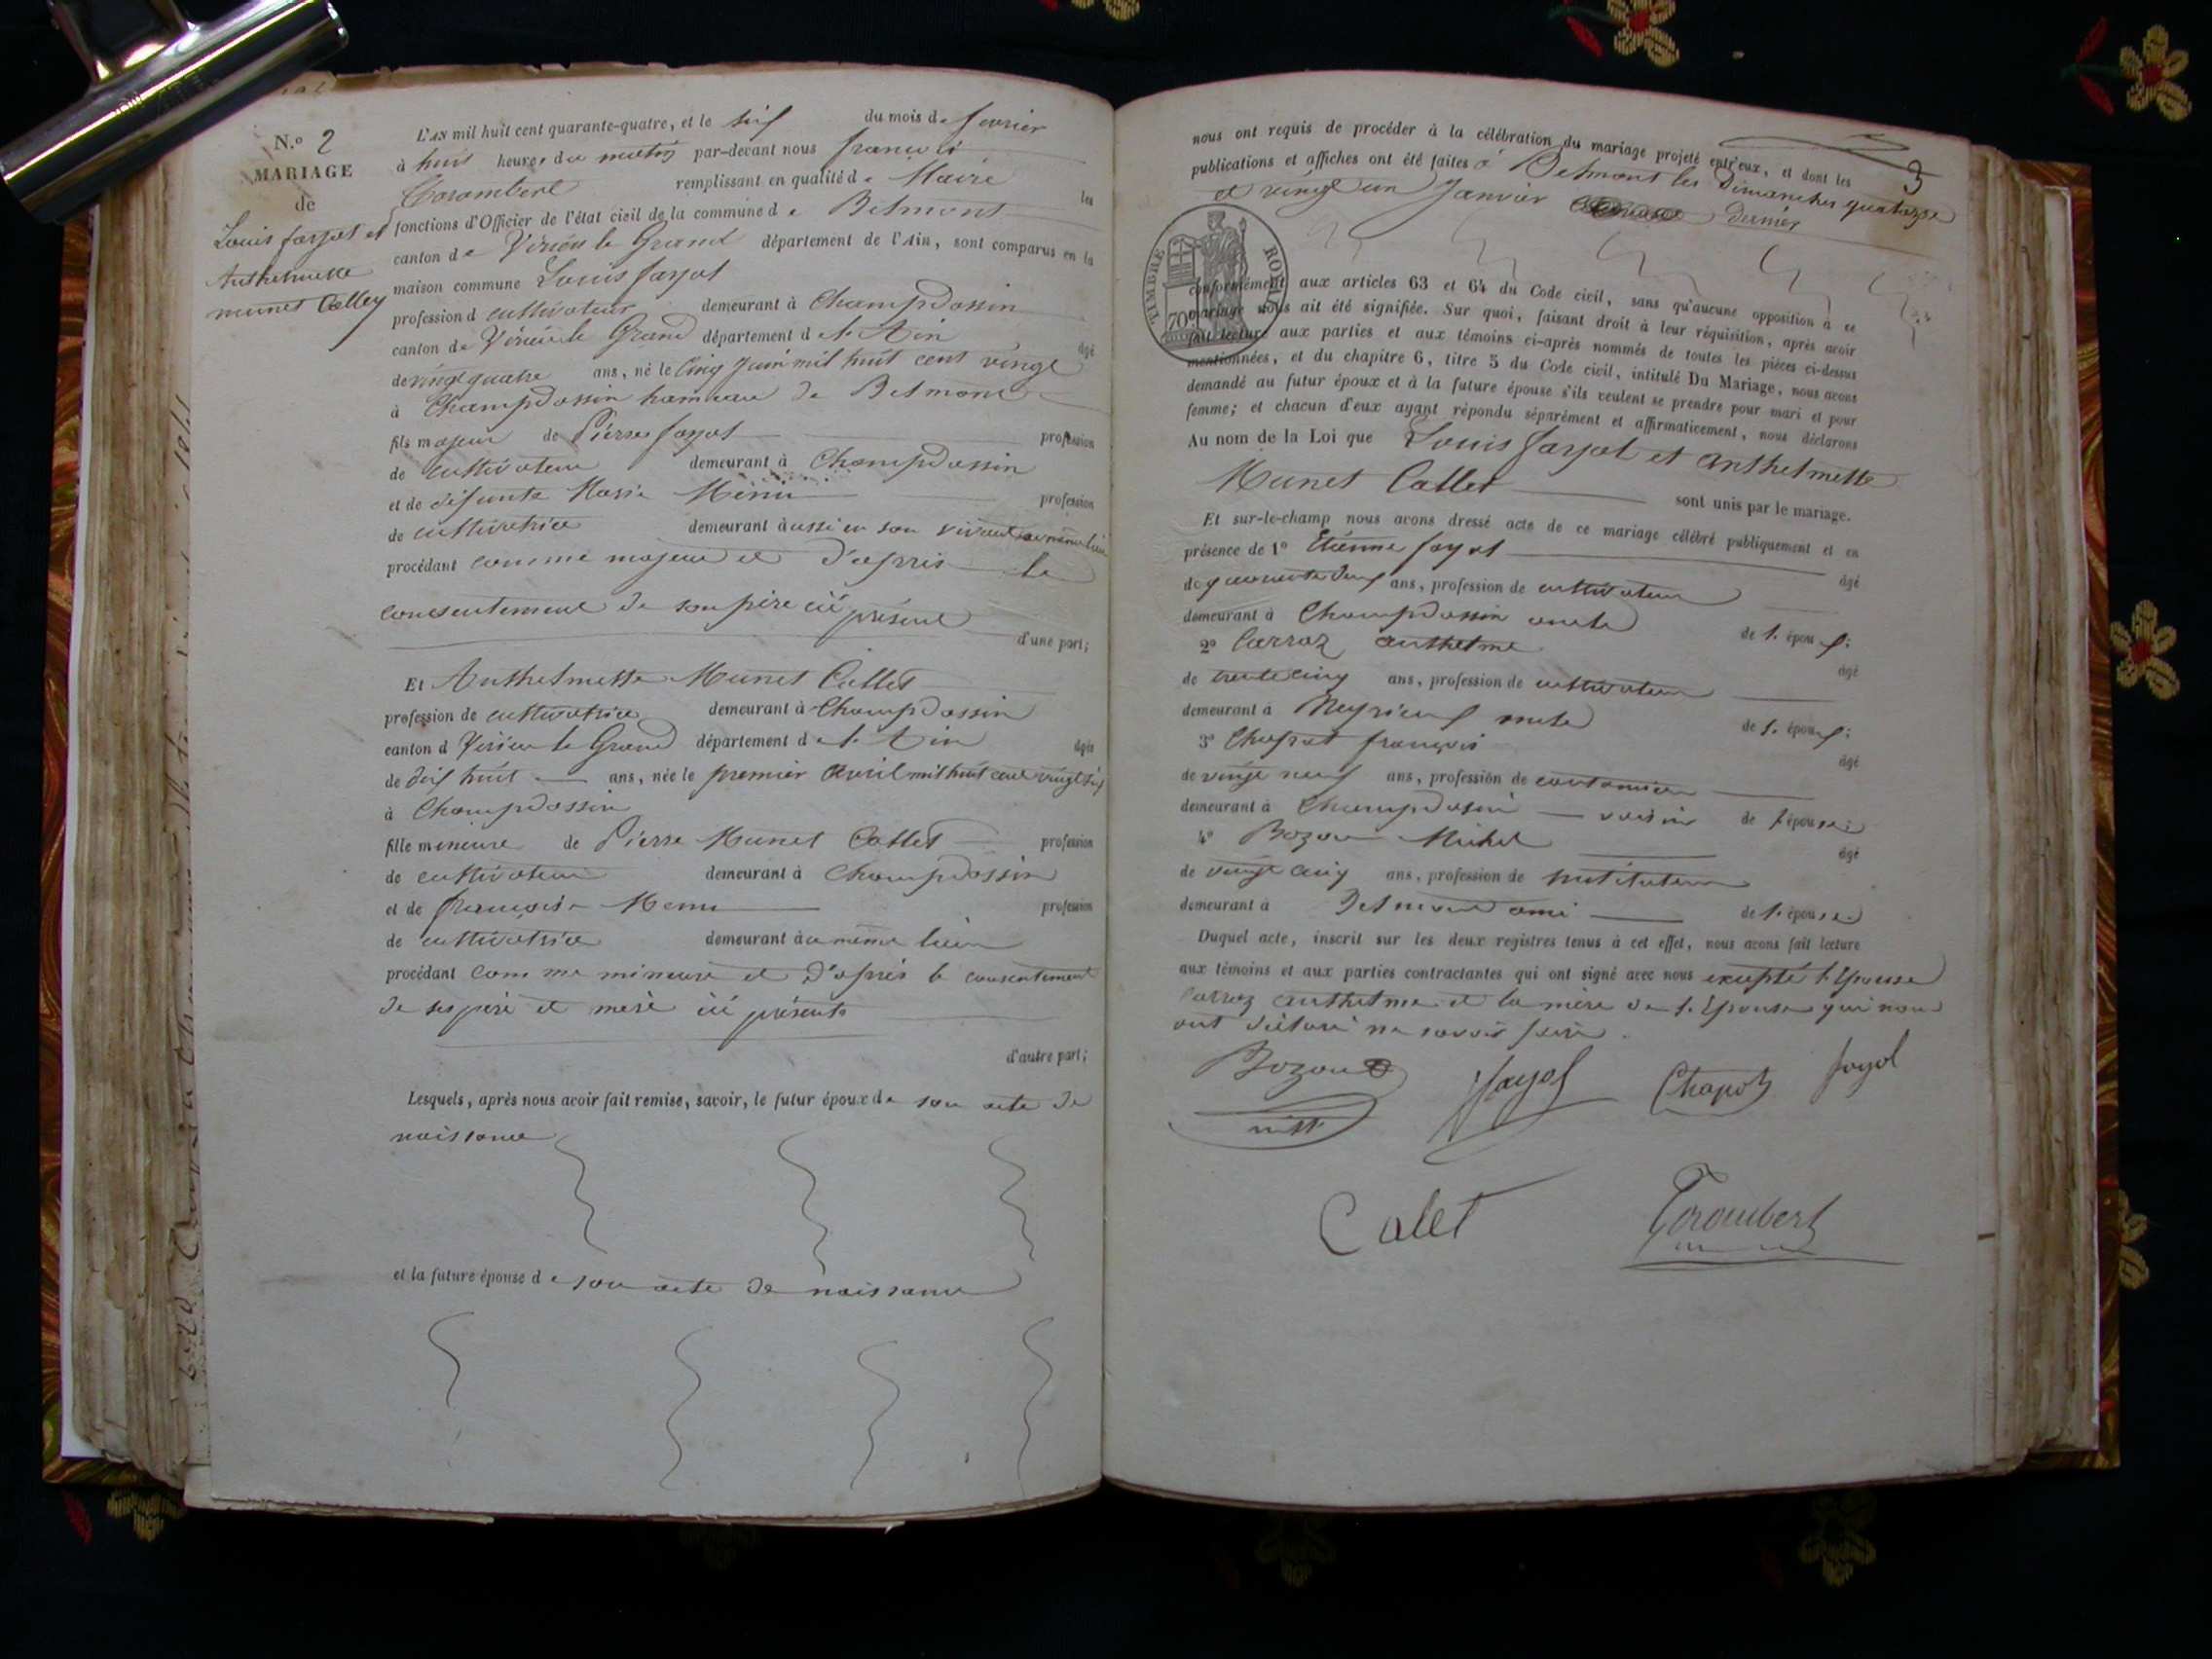 N.º 2
MARIAGE
de
Louis fayol et
Anthelmette
munet Callet
L'AN mil huit cent quarante-quatre, et le six du mois de fevrier
à huit heures du matin par-devant nous françois
Corombert remplissant en qualité de Maire les
fonctions d'Officier de l'état civil de la commune de Belmont
canton de Virieu le Grand département de l'Ain, sont comparus en la
maison commune Louis fayol
profession d cultivateur demeurant à Champdossin
canton de Virieu le Grand département de l'Ain âgé
de vingt quatre ans, né le cinq juin mil huit cent vingt
à Champdossin hameau de Belmont
fils majeur de Pierre fayol profession
de cultivateur demeurant à Champdossin
et de défunte Marie Menu profession
de cultivatrice demeurant aussi en son vivant au même lieu
procédant comme majeur et d'après le
consentement de son père ici présent
d'une part;
Et Anthelmette Munet Callet
profession de cultivatrice demeurant à Champdossin
canton d Virieu le Grand département de l'Ain âgée
de dix huit ans, née le premier avril mil huit cent vingt six
à Champdossin
fille mineure de Pierre Munet Callet profession
de cultivateur demeurant à Champdossin
et de françoise Menu profession
de cultivatrice demeurant au même lieu
procédant comme mineure et d'après le consentement
de ses père et mère ici présents
d'autre part;
Lesquels, après nous avoir fait remise, savoir, le futur époux de son acte de
naissance
et la future épouse de son acte de naissance
3
nous ont requis de procéder à la célébration du mariage projeté entr'eux, et dont les
publications et affiches ont été faites à Belmont les Dimanches quatorze
et vingt un Janvier dernier
TIMBRE ROYAL
70
conformément aux articles 63 et 64 du Code civil, sans qu'aucune opposition à ce
mariage nous ait été signifiée. Sur quoi, faisant droit à leur réquisition, après avoir
fait lecture aux parties et aux témoins ci-après nommés de toutes les pièces ci-dessus
mentionnées, et du chapitre 6, titre 5 du Code civil, intitulé Du Mariage, nous avons
demandé au futur époux et à la future épouse s'ils veulent se prendre pour mari et pour
femme; et chacun d'eux ayant répondu séparément et affirmativement, nous déclarons
Au nom de la Loi que Louis fayol et anthelmette
Munet Callet sont unis par le mariage.
Et sur-le-champ nous avons dressé acte de ce mariage célébré publiquement et en
présence de 1º Etienne fayol âgé
de quarante deux ans, profession de cultivateur
demeurant à Champdossin oncle de l'époux;
2º Carraz anthelme âgé
de trente cinq ans, profession de cultivateur
demeurant à Neyrieux oncle de l'époux;
3º Chapot françois âgé
de vingt neuf ans, profession de cantonnier
demeurant à Champdossin voisin de l'épouse;
4º Bozon Michel âgé
de vingt cinq ans, profession de instituteur
demeurant à Belmont ami de l'épouse
Duquel acte, inscrit sur les deux registres tenus à cet effet, nous avons fait lecture
aux témoins et aux parties contractantes qui ont signé avec nous excepté l'Epouse
Carraz anthelme et la mère de l'Epouse qui nous
ont déclaré ne savoir faire.
Bozon fayol Chapot fayol
instr
Calet Corombert